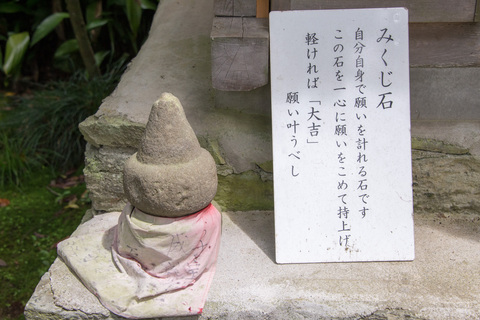 みくじ石
自分自身で願いを計れる石です
この石を一心に願いをこめて持上げ
軽ければ「大吉」
願い叶うべし